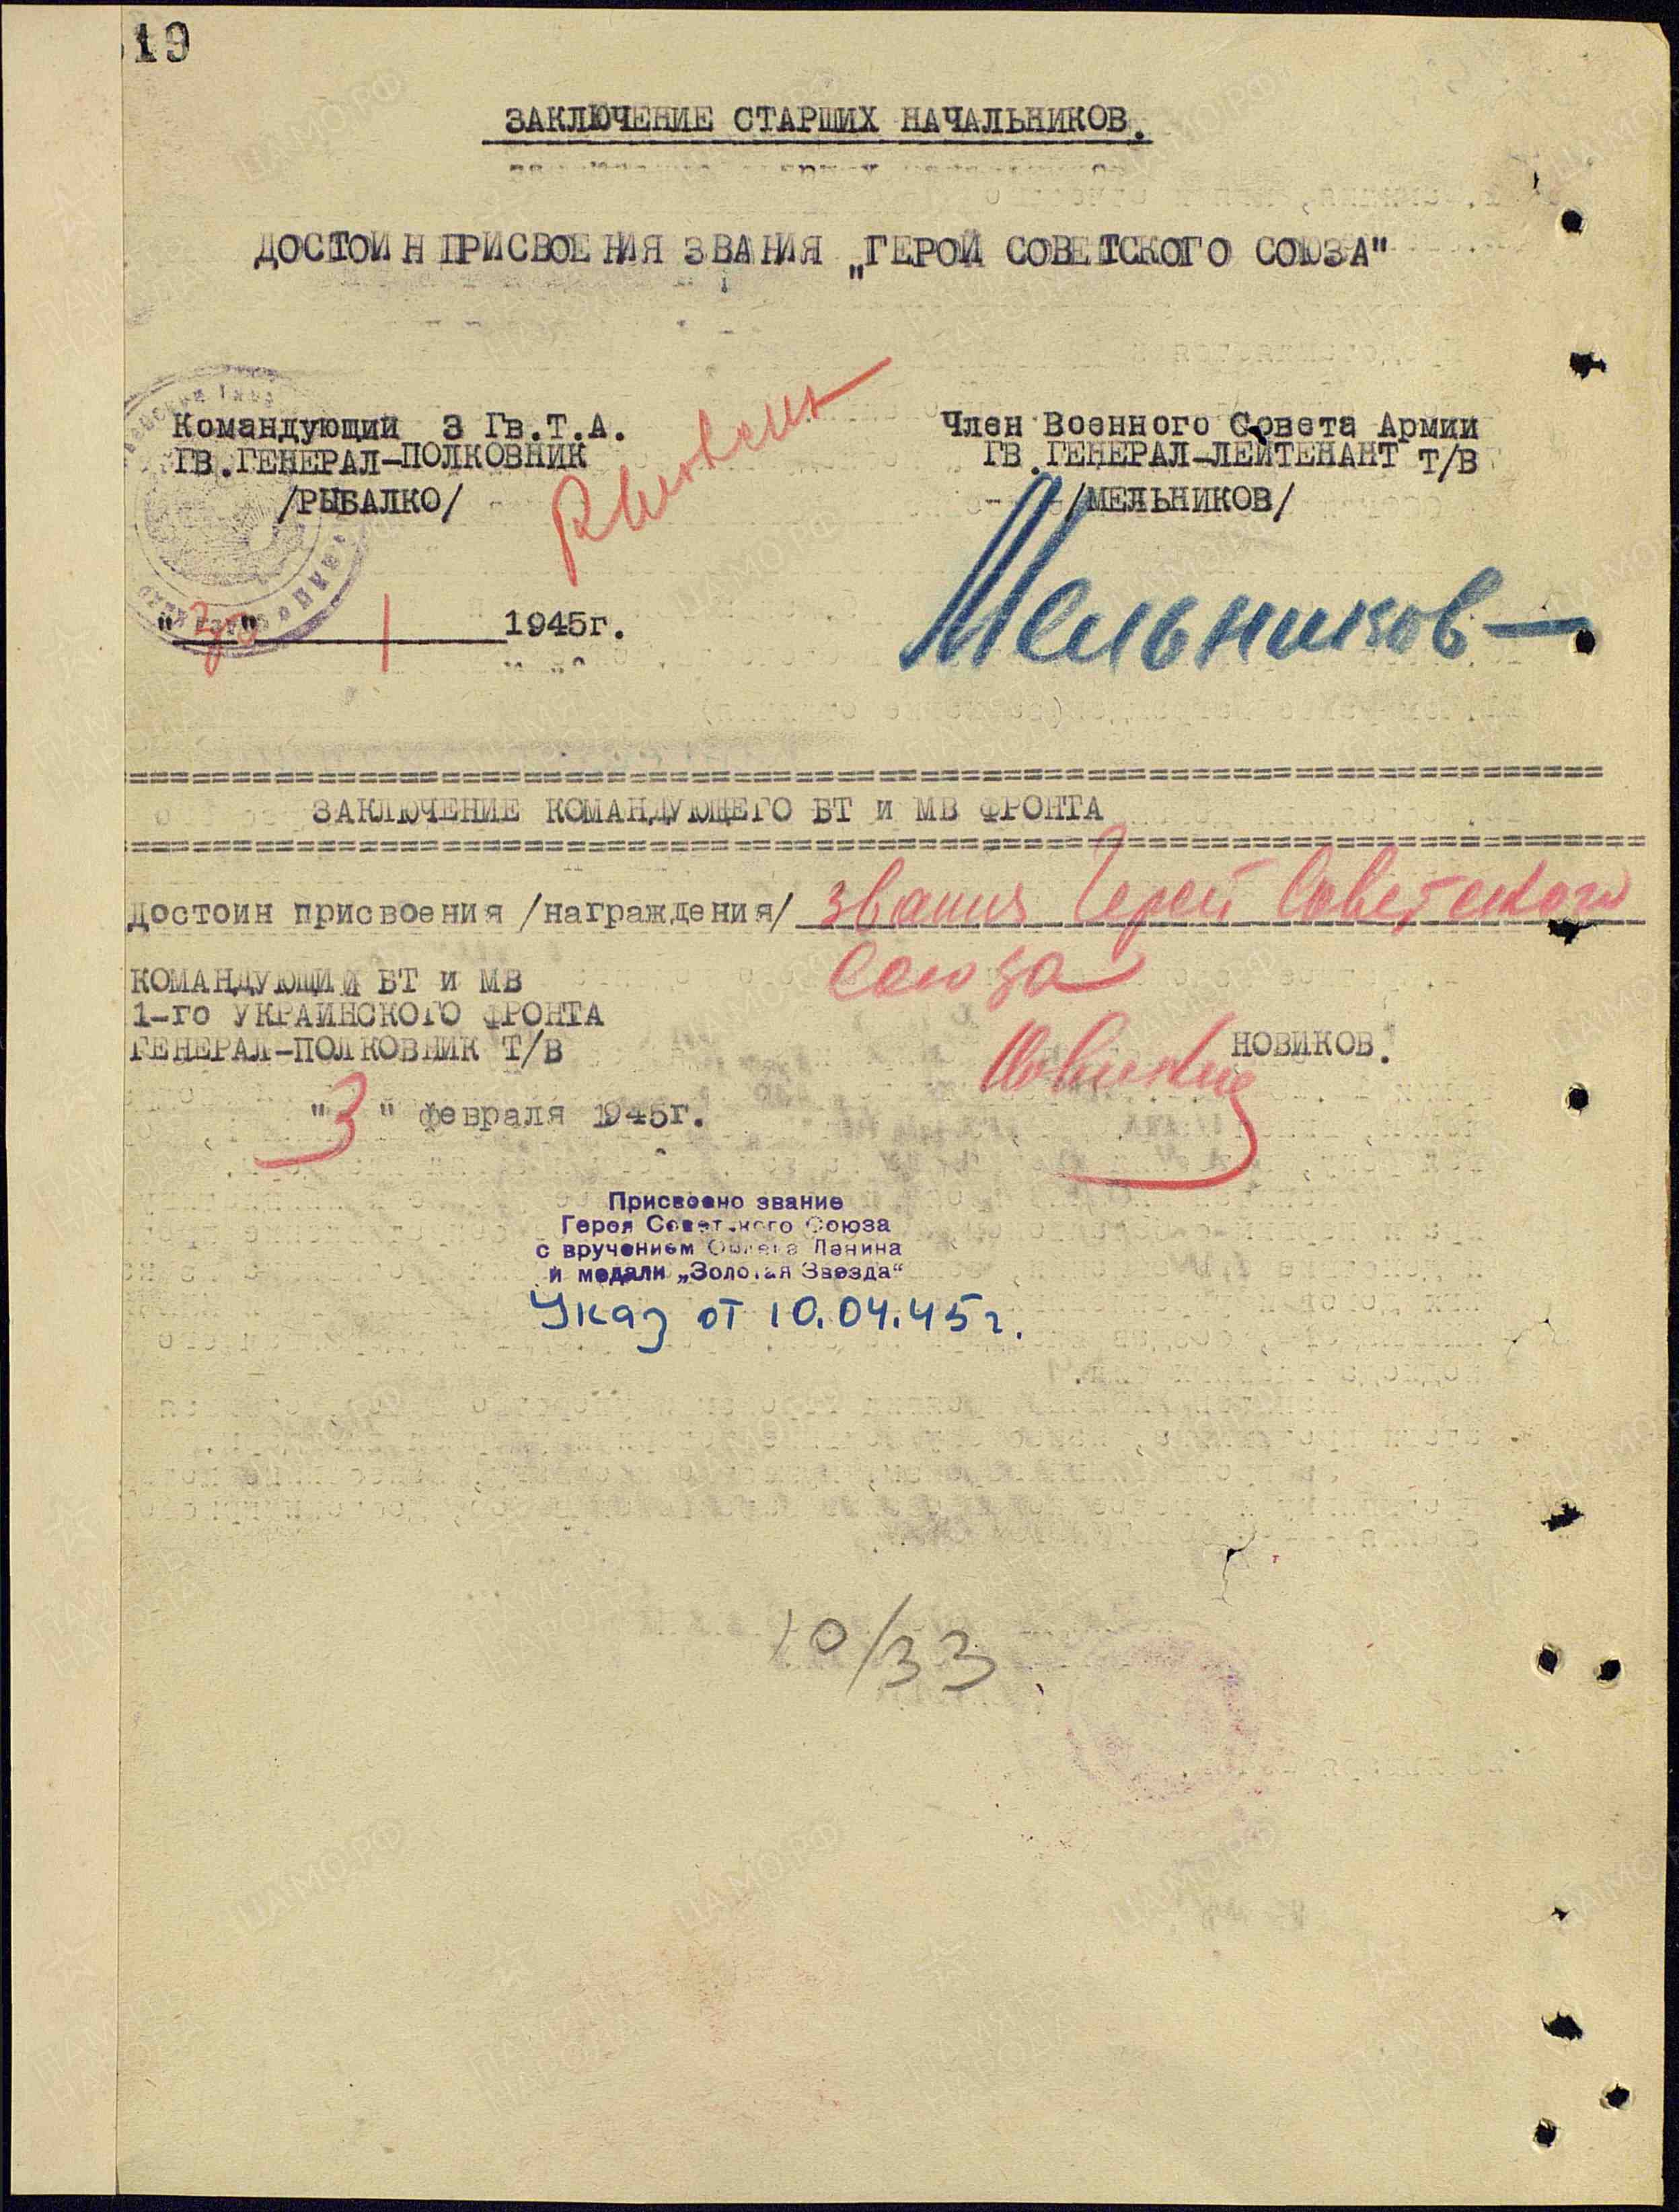 19
ЗАКЛЮЧЕНИЕ СТАРШИХ НАЧАЛЬНИКОВ.
ДОСТОИН ПРИСВОЕНИЯ ЗВАНИЯ „ГЕРОЙ СОВЕТСКОГО СОЮЗА"
Командующий 3 Гв.Т.А.
ГВ.ГЕНЕРАЛ-ПОЛКОВНИК
/РЫБАЛКО/
Член Военного Совета Армии
ГВ.ГЕНЕРАЛ-ЛЕЙТЕНАНТ Т/В
/МЕЛЬНИКОВ/
Мельников
"30" 1 1945г.
ЗАКЛЮЧЕНИЕ КОМАНДУЮЩЕГО БТ и МВ ФРОНТА
Достоин присвоения /награждения/ звания Герой Советского
Союза
КОМАНДУЮЩИЙ БТ и МВ
1-го УКРАИНСКОГО ФРОНТА
ГЕНЕРАЛ-ПОЛКОВНИК Т/В
НОВИКОВ.
"3" февраля 1945г.
Присвоено звание
Героя Советского Союза
с вручением Ордена Ленина
и медали „Золотая Звезда"
Указ от 10.04.45г.
10/33